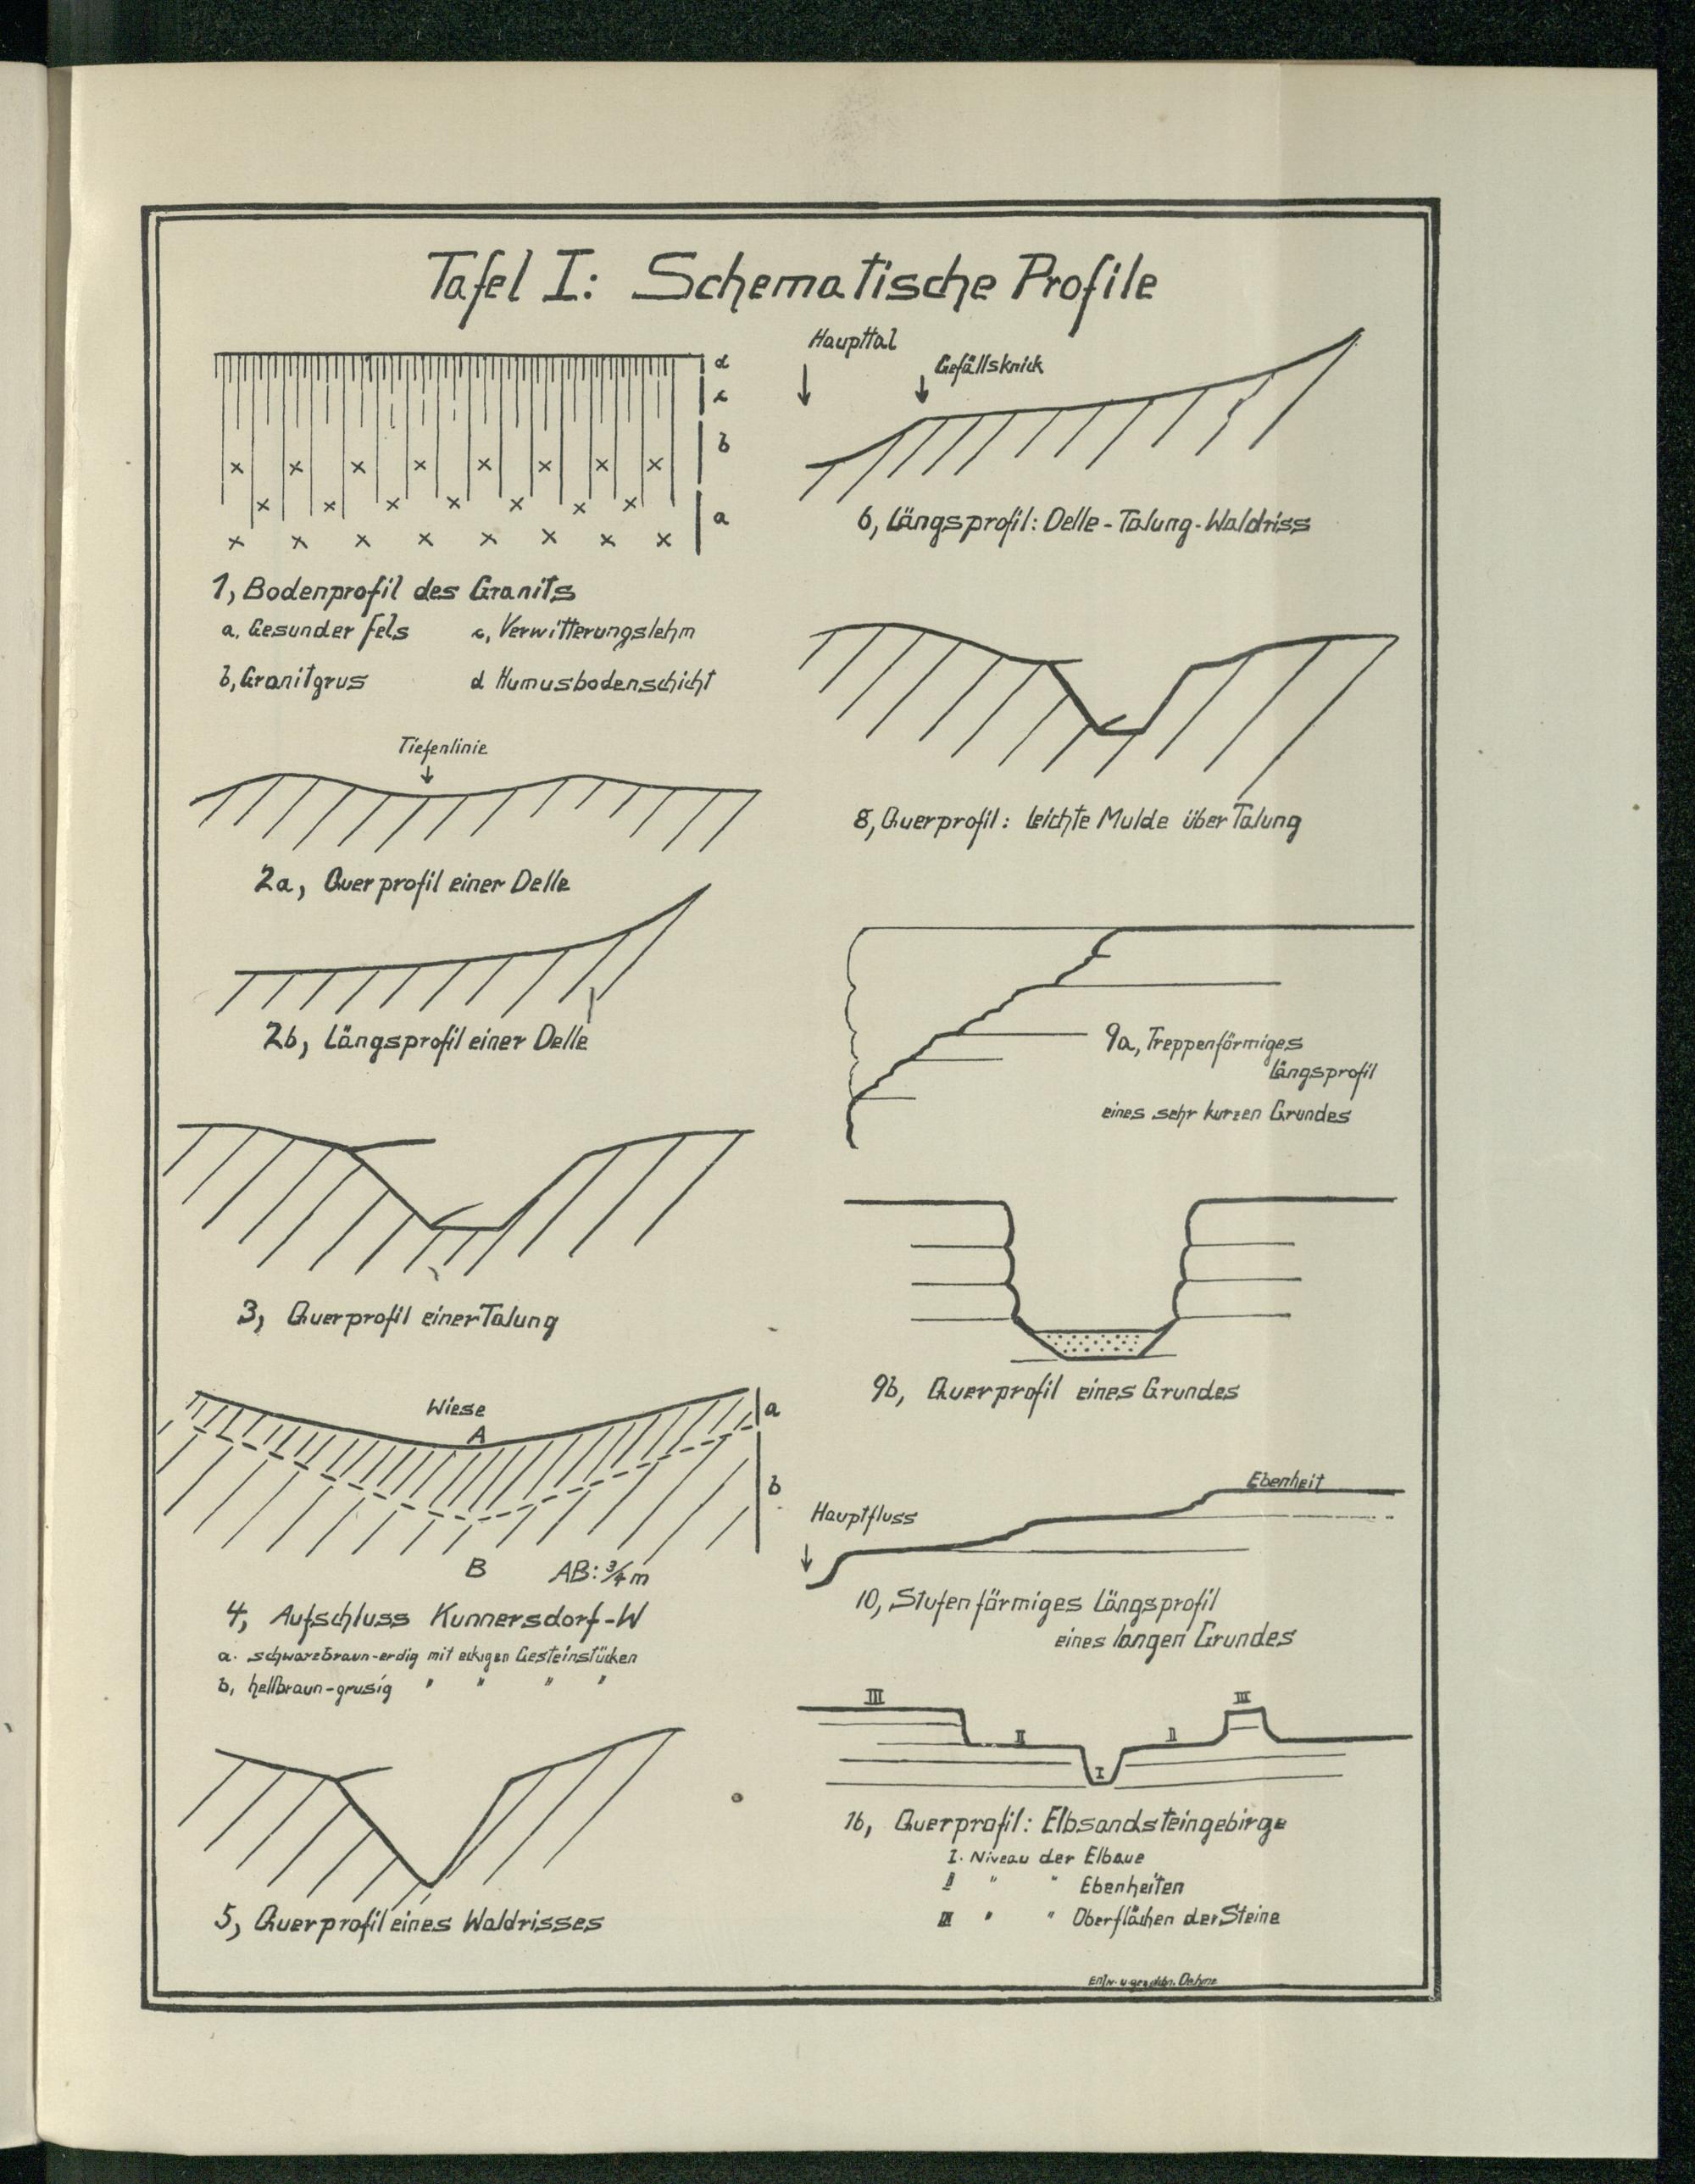 Tafel I: Schematische Profile
d
c
b
a
1, Bodenprofil des Granits
a. Gesunder Fels c, Verwitterungslehm
b, Granitgrus d Humusbodenschicht
Tiefenlinie
2a, Querprofil einer Delle
2b, Längsprofil einer Delle
3, Querprofil einer Talung
Wiese
A
a
b
B AB: 3/4 m
4, Aufschluss Kunnersdorf-W
a. schwarzbraun-erdig mit eckigen Gesteinstücken
b, hellbraun-grusig " " " "
5, Querprofil eines Waldrisses
Haupttal
Gefällsknick
6, Längsprofil: Delle-Talung-Waldriss
8, Querprofil: Leichte Mulde über Talung
9a, Treppenförmiges
Längsprofil
eines sehr kurzen Grundes
9b, Querprofil eines Grundes
Ebenheit
Hauptfluss
10, Stufenförmiges Längsprofil
eines langen Grundes
III III
II II
I
16, Querprofil: Elbsandsteingebirge
I. Niveau der Elbaue
II " " Ebenheiten
III " " Oberflächen der Steine
Entw. u. gez.